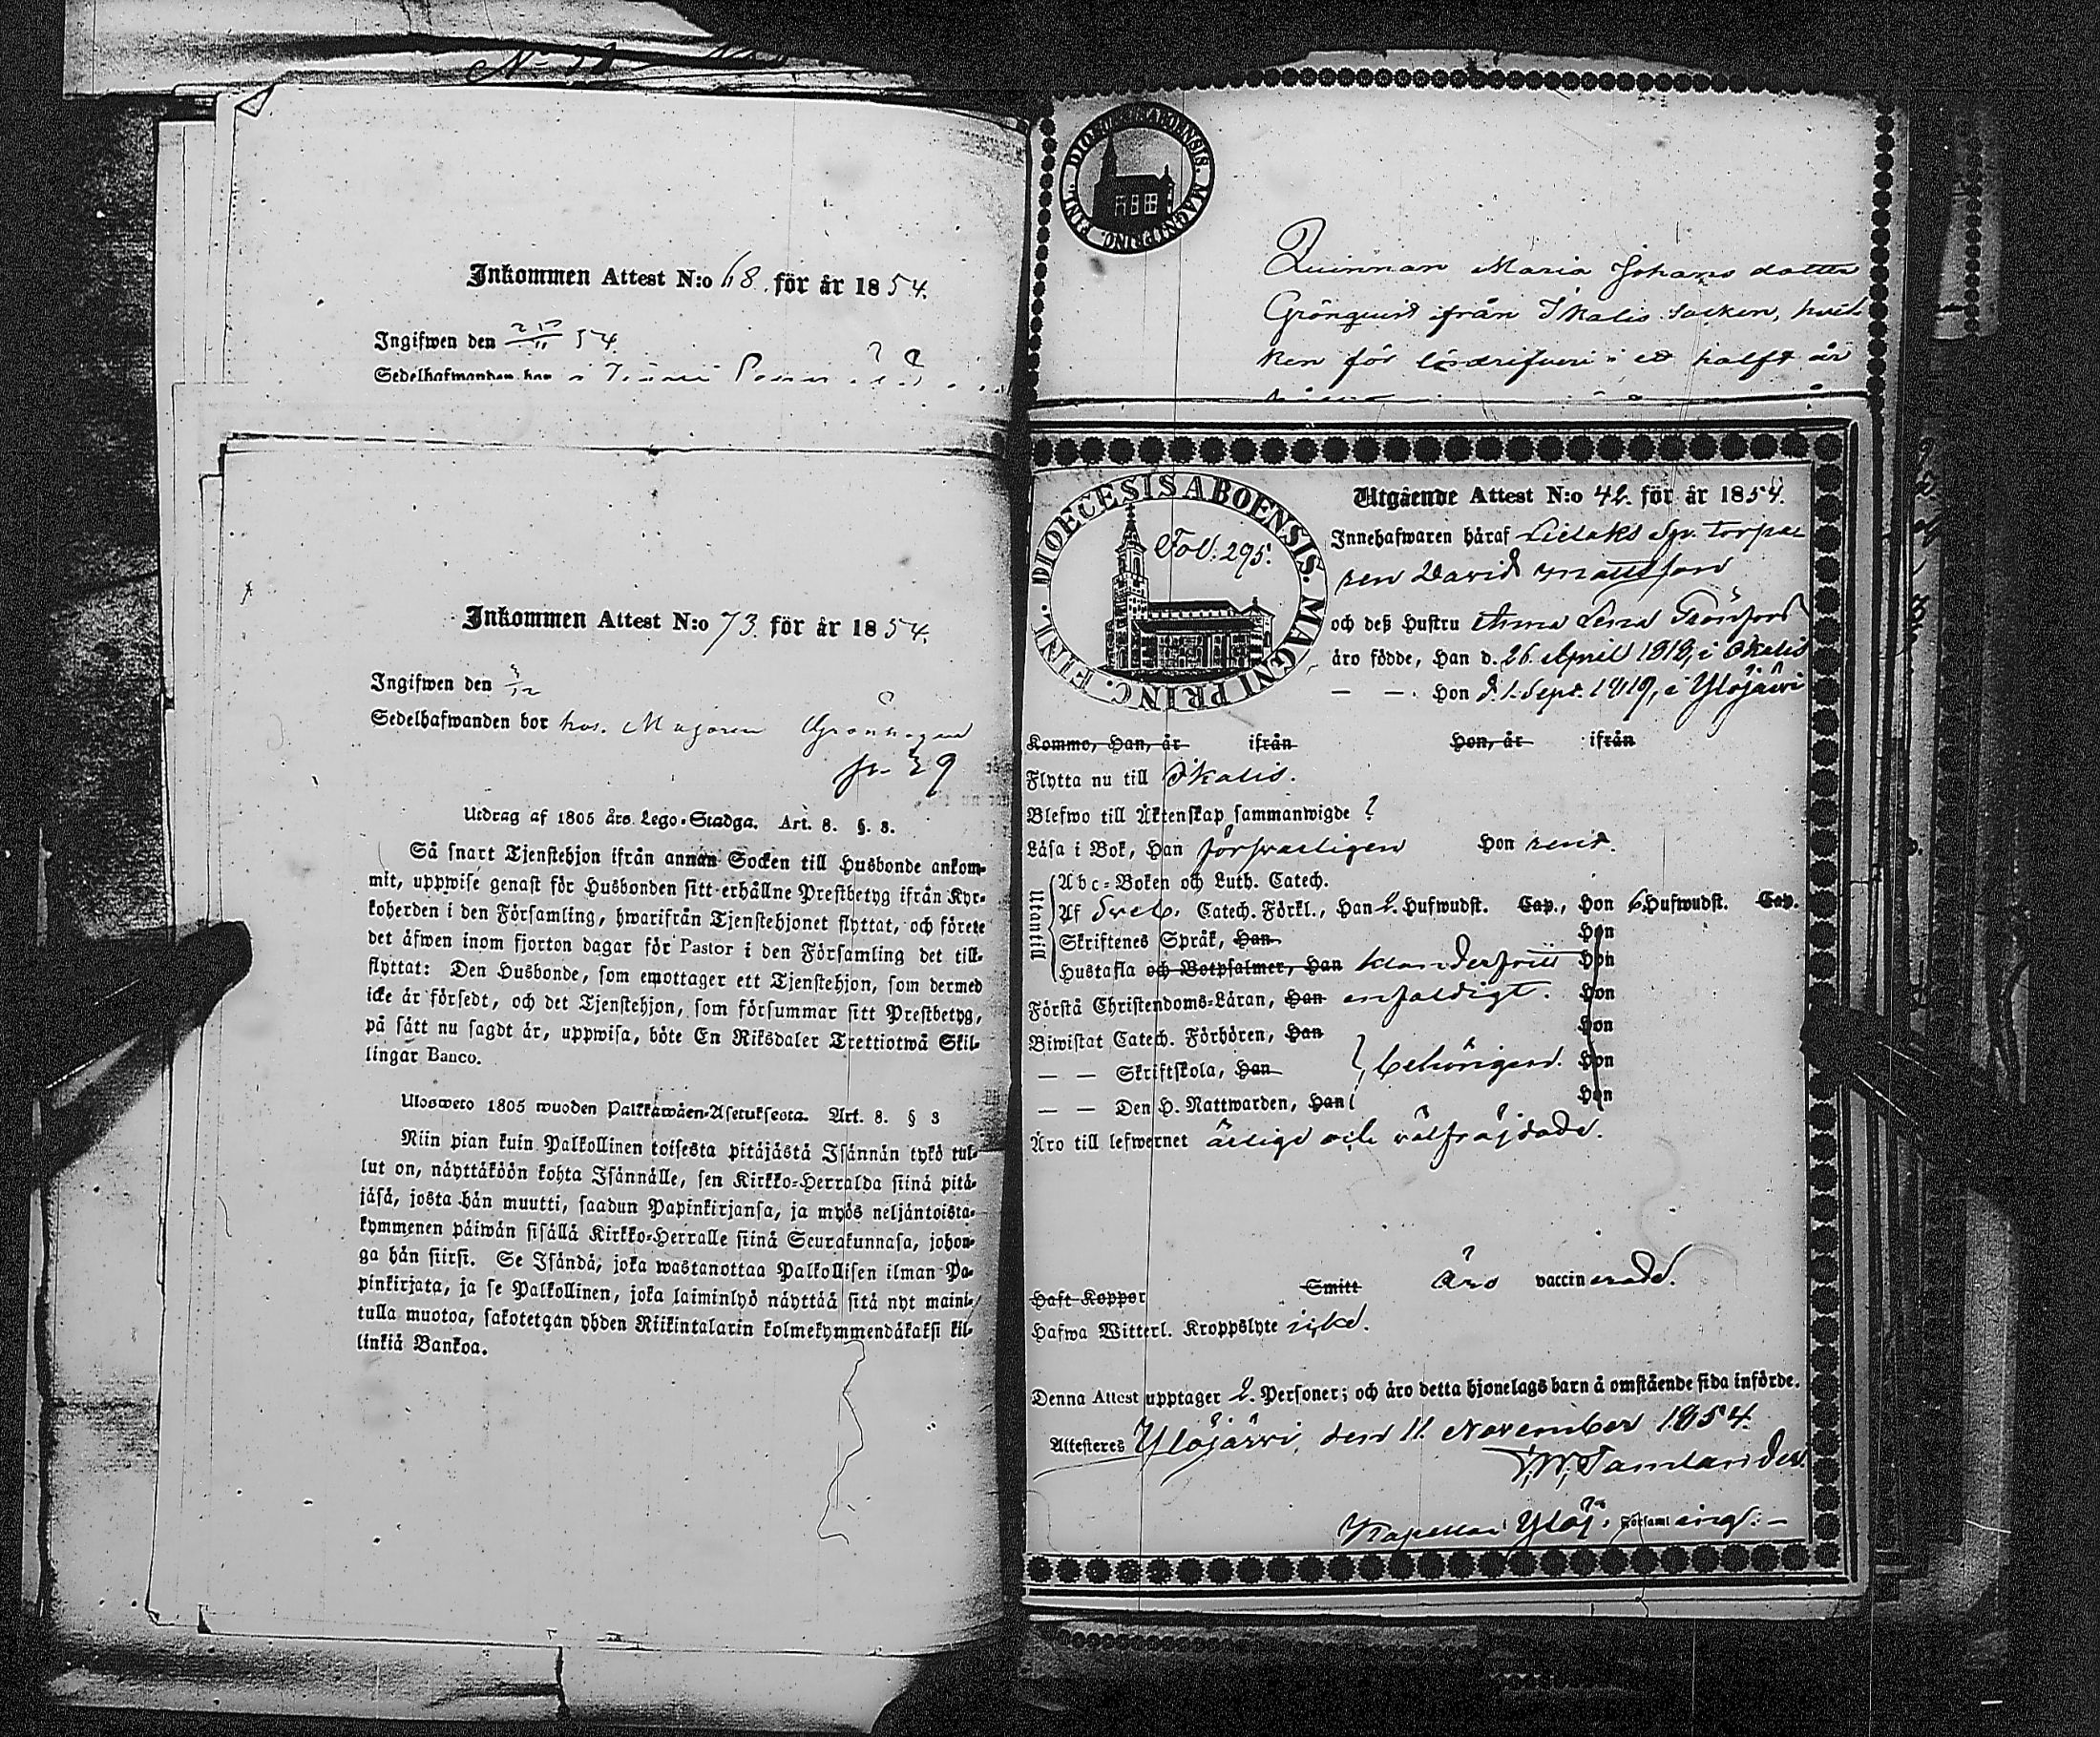 Inkommen Attest N:o 68. för år 1854.
Ingifwen den 54.
Sedelhafwanden bor i
Inkommen Attest N:o 73. för år 1854.
Ingifwen den 3/12
Sedelhafwanden bor hos. Majoren Grönhagen
Utdrag af 1805 års Lego-Stadga. Art. 8. §. 3.
Så snart Tjenstehjon ifrån annan Socken till Husbonde ankom-
mit, uppwise genast för Husbonden sitt erhållne Prestbetyg ifrån Kyr-
koherden i den Församling, hwarifrån Tjenstehjonet flyttat, och förete
det äfwen inom fjorton dagar för Pastor i den Församling det till-
flyttat: Den Husbonde, som emottager ett Tjenstehjon, som dermed
icke är försedt, och det Tjenstehjon, som försummar sitt Prestbetyg,
på sätt nu sagdt är, uppwisa, böte En Riksdaler Trettiotwå Skil-
lingar Banco.
Ulosweto 1805 wuoden Palkkawäen-Asetuksesta. Art. 8. § 3
Niin pian kuin Palkollinen toisesta pitäjästä Isännän tykö tul-
lut on, näyttäköön kohta Isännälle, sen Kirkko-Herralda siinä pitä-
jäsä, josta hän muutti, saadun Papinkirjansa, ja myös neljäntoista-
kymmenen päiwän sisällä Kirkko-Herralle siinä Seurakunnasa, johon-
ga hän siirsi. Se Isändä, joka wastanottaa Palkollisen ilman Pa-
pinkirjata, ja se Palkollinen, joka laiminlyö näyttää sitä nyt maini-
tulla muotoa, sakotetaan yhden Riikintalarin kolmekymmendäkaksi kil-
linkiä Bankoa.
DIOECESIS ABOENSIS. MAGNI PRINC. FINL.
Quinnan Maria Johans dotter
Grönquist från Ikalis Socken, hvil-
ken för lösdrifveri i ett halft år
DIOECESIS ABOENSIS. MAGNI PRINC. FINL.
Fol. 295.
Utgående Attest N:o 42. för år 1854.
Innehafwaren häraf Lielaks Sgr. Torpa-
ren David Mattsson
och deß Hustru Anna Lena
äro födde, Han d. 26. April 1818, i Ikalis
— — Hon d. 1. Sept. 1819, i Ylöjärvi
Kommo, Han, år ifrån Hon, år ifrån
Flytta nu till Ikalis.
Blefwo till Äktenskap sammanwigde ?
Läsa i Bok, Han försvarligen Hon rent.
Utantill
Abc-Boken och Luth. Catech.
Af Sveb. Catech. Förkl., Han 2. Hufwudst. Cap., Hon 6. Hufwudst. Cap.
Skriftenes Språk, Han Hon
Hustafla och Botpsalmer, Han klanderfritt Hon
Förstå Christendoms-Läran, Han enfaldigt. Hon
Biwistat Catech. Förhören, Han Hon
— — Skriftskola, Han behörigen. Hon
— — Den H. Nattwarden, Han Hon
Äro till lefwernet ärlige och välfräjdade.
Haft Koppor Smitt Äro vaccinerade.
Hafwa Witterl. Kroppslyte icke.
Denna Attest upptager 2. Personer; och äro detta hjonelags barn å omstående sida införde.
Attesteras Ylöjärvi, den 11. November 1854.
Kapellan i Ylöj. Församling. —